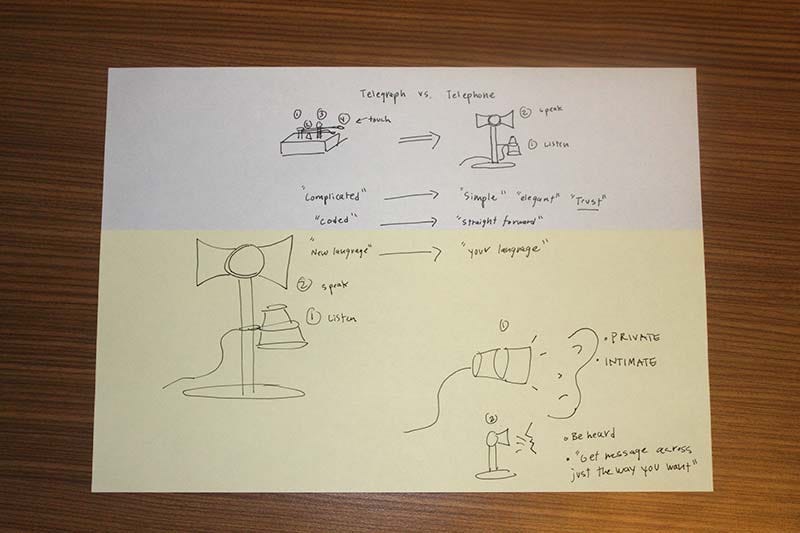 Telegraph vs. Telephone
① ② ③ ④ touch
② speak
① Listen
"Complicated" "Simple" "elegant" "Trust"
"Coded" "straight forward"
"New language" "your language"
② speak
① Listen
①
• PRIVATE
• INTIMATE
②
• Be heard
• "Get message across
just the way you want"